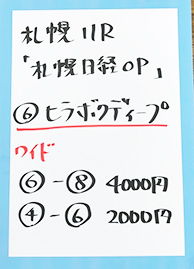 札幌11R
「札幌日経OP」
⑥ヒラボクディープ
ワイド
⑥-⑧ 4000円
④-⑥ 2000円